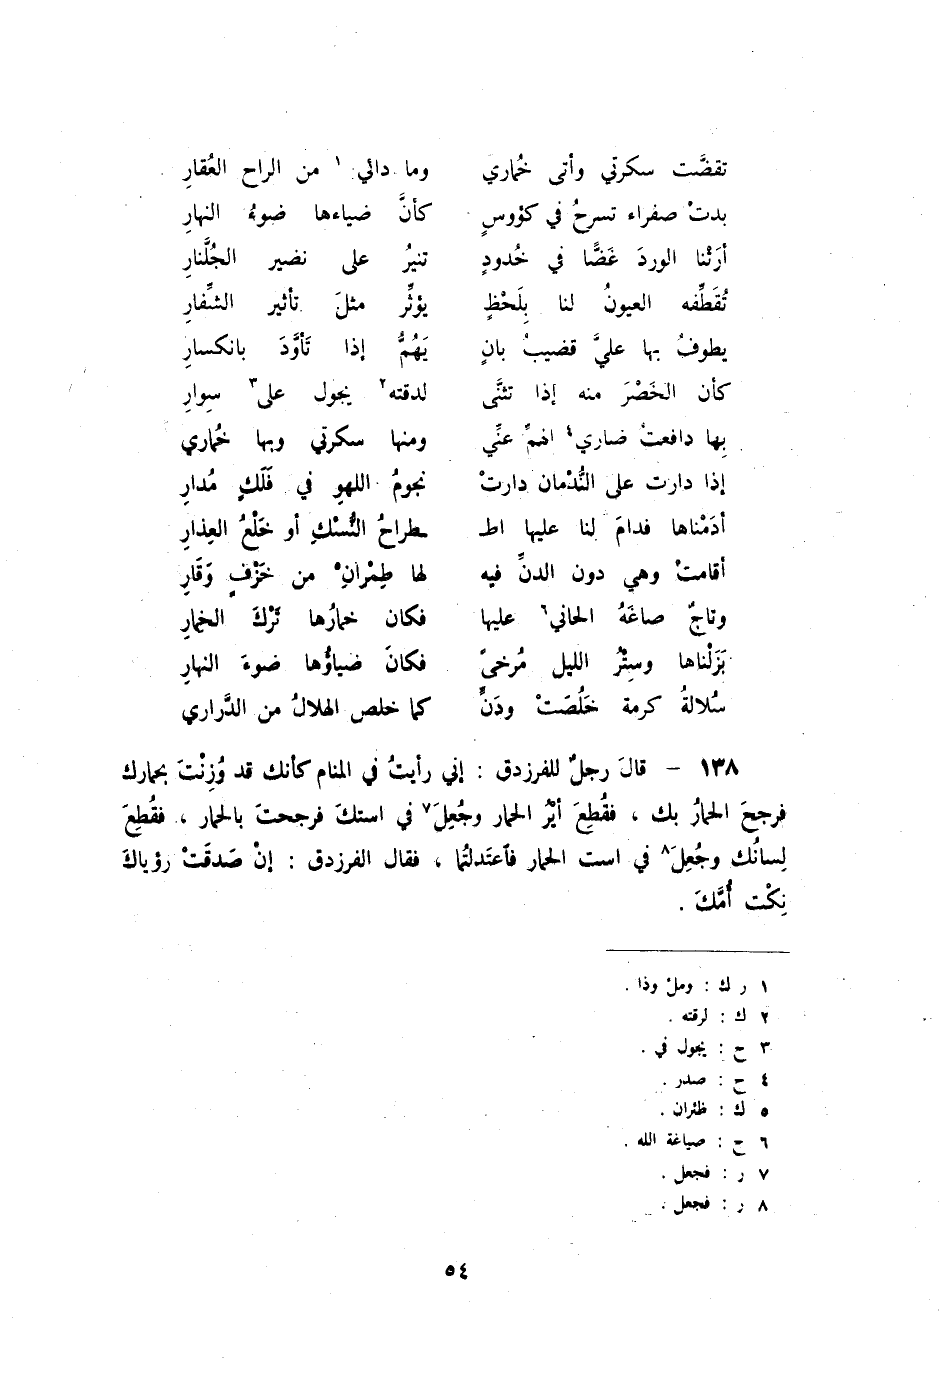 تقضَّت سكرتي وأتى خُماري وما دائي ١ من الراح العُقارِ
بدتْ صفراء تسرحُ في كؤوسٍ كأنَّ ضياءها ضوءُ النهارِ
أرَتْنا الوردَ غَضًّا في خُدودٍ تنيرُ على نضير الجُلَّنارِ
تُقَطِّفه العيونُ لنا بِلَحْظٍ يؤثِّر مثلَ تأثير الشِّفارِ
يطوفُ بها عليَّ قضيبُ بانٍ يَهُمُّ إذا تَأَوَّدَ بانكسارِ
كأن الخَصْرَ منه إذا تثنَّى لدقته٢ يجول على٣ سِوارِ
بِها دافعتُ ضاري٤ الهمِّ عنِّي ومنها سكرتي وبها خُماري
إذا دارت على النُّدْمان دارتْ نجومُ اللهوِ في فَلَكٍ مُدارِ
أدَمْناها فدامَ لنا عليها اطـ ـطراحُ النُّسْكِ أو خَلْعُ العِذارِ
أقامتْ وهي دون الدنِّ فيه لها طِمْرانِ٥ من خَزْفٍ وَقَارِ
وتاجٌ صاغَهُ الحاني٦ عليها فكان خمارُها تَرْكَ الخمارِ
بَزَلْناها وسِتْرُ الليل مُرخىً فكانَ ضياؤُها ضوءَ النهارِ
سُلالةُ كرمة خَلُصَتْ ودَنٍّ كما خلص الهلالُ من الدَّراري
١٣٨ – قالَ رجلٌ للفرزدق : إني رأيتُ في المنام كأنك قد وُزِنْتَ بحمارك
فرجحَ الحمارُ بك ، فقُطِعَ أيْرُ الحمار وجُعِلَ٧ في استكَ فرجحتَ بالحمار ، فقُطِعَ
لِسانُك وجُعِلَ٨ في است الحمار فاعتدلتُما ، فقال الفرزدق : إنْ صَدقَتْ رؤياكَ
نِكْت أُمَّكَ .
١ ر ك : وملْ وذا .
٢ ك : لرقته .
٣ ح : يجول في .
٤ ح : صدر .
٥ ك : ظئران .
٦ ح : صياغة الله .
٧ ر : فجعل .
٨ ر : فجعل .
٥٤